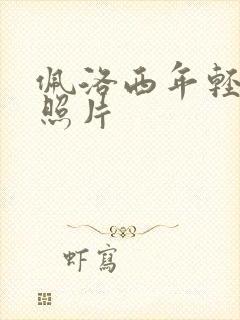 佩洛西年轻
照片
虾写